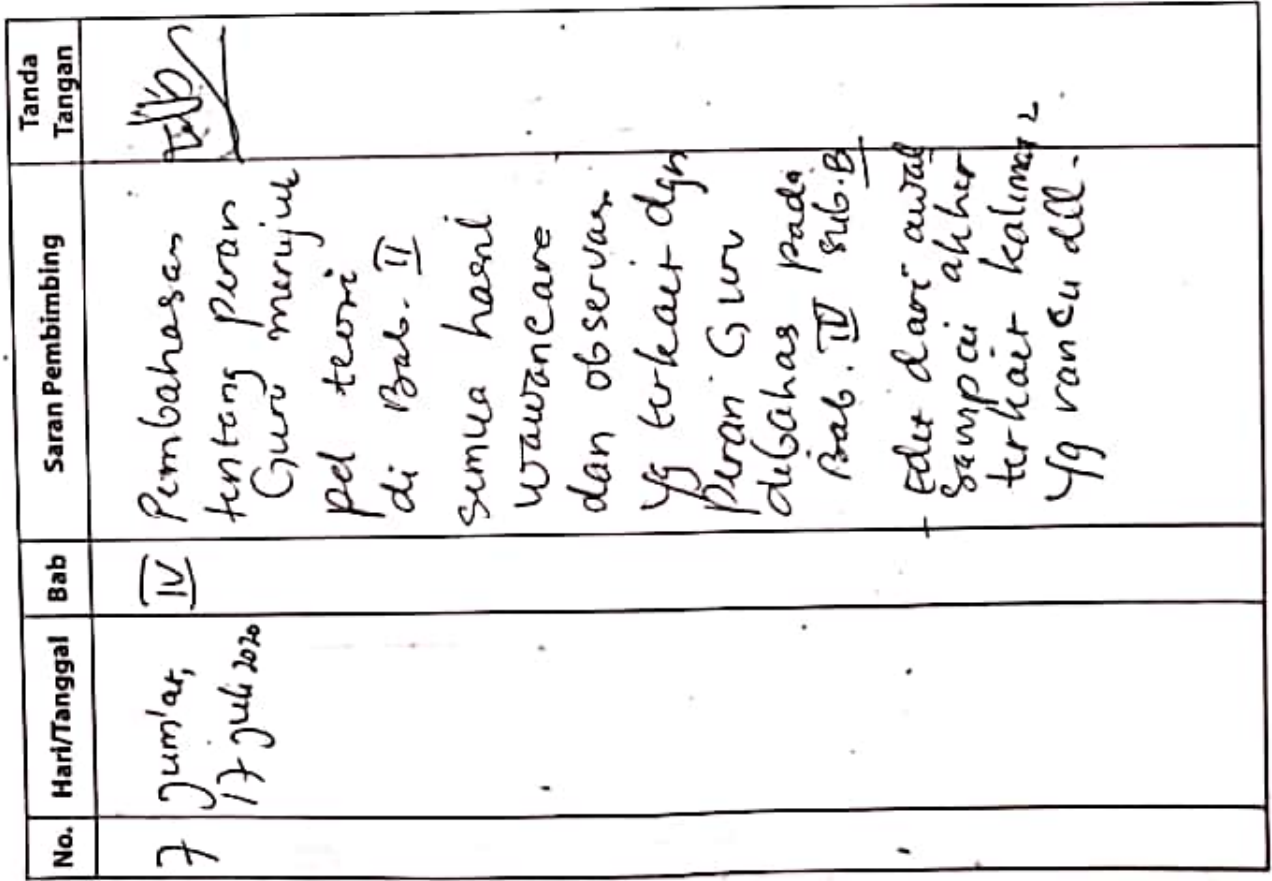 No. Hari/Tanggal Bab Saran Pembimbing Tanda Tangan
7 Jum'at, 17 Juli 2020 IV
Pembahasan
tentang peran
Guru merujuk
pd teori
di Bab. II
Semua hasil
wawancara
dan observasi
yg terkait dgn
peran Guru
dibahas pada
Bab. IV sub.B
- Edit dari awal
sampai akhir
terkait kalimat2
yg rancu dll.